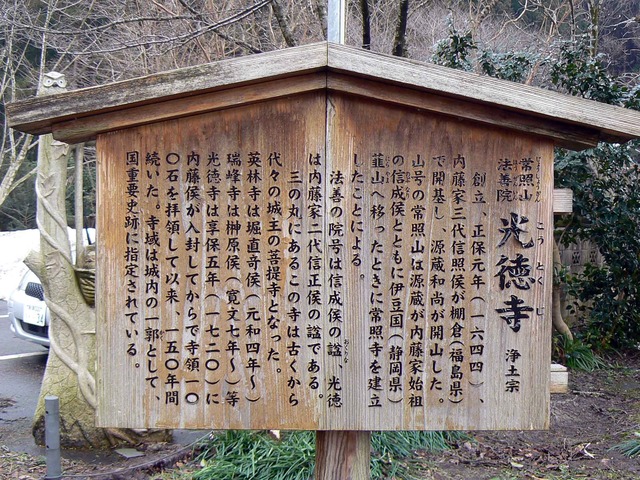 常照山
じょうしょうざん
法善院
ほうぜんいん
光徳寺 浄土宗
こうとくじ
創立、正保元年（一六四四）、
内藤家三代信照侯が棚倉（福島県）
で開基し、源蔵和尚が開山した。
山号の常照山は源蔵が内藤家始祖
の信成侯とともに伊豆国（静岡県）
韮山へ移ったときに常照寺を建立
にらやま
したことによる。
法善の院号は信成侯の諡、光徳
おくりな
は内藤家二代信正侯の諡である。
三の丸にあるこの寺は古くから
代々の城主の菩提寺となった。
英林寺は堀直竒侯（元和四年〜）
瑞峰寺は榊原侯（寛文七年〜）等
光徳寺は享保五年（一七二〇）に
内藤侯が入封してからで寺領一〇
〇石を拝領して以来、一五〇年間
続いた。寺域は城内の一郭として、
国重要史跡に指定されている。